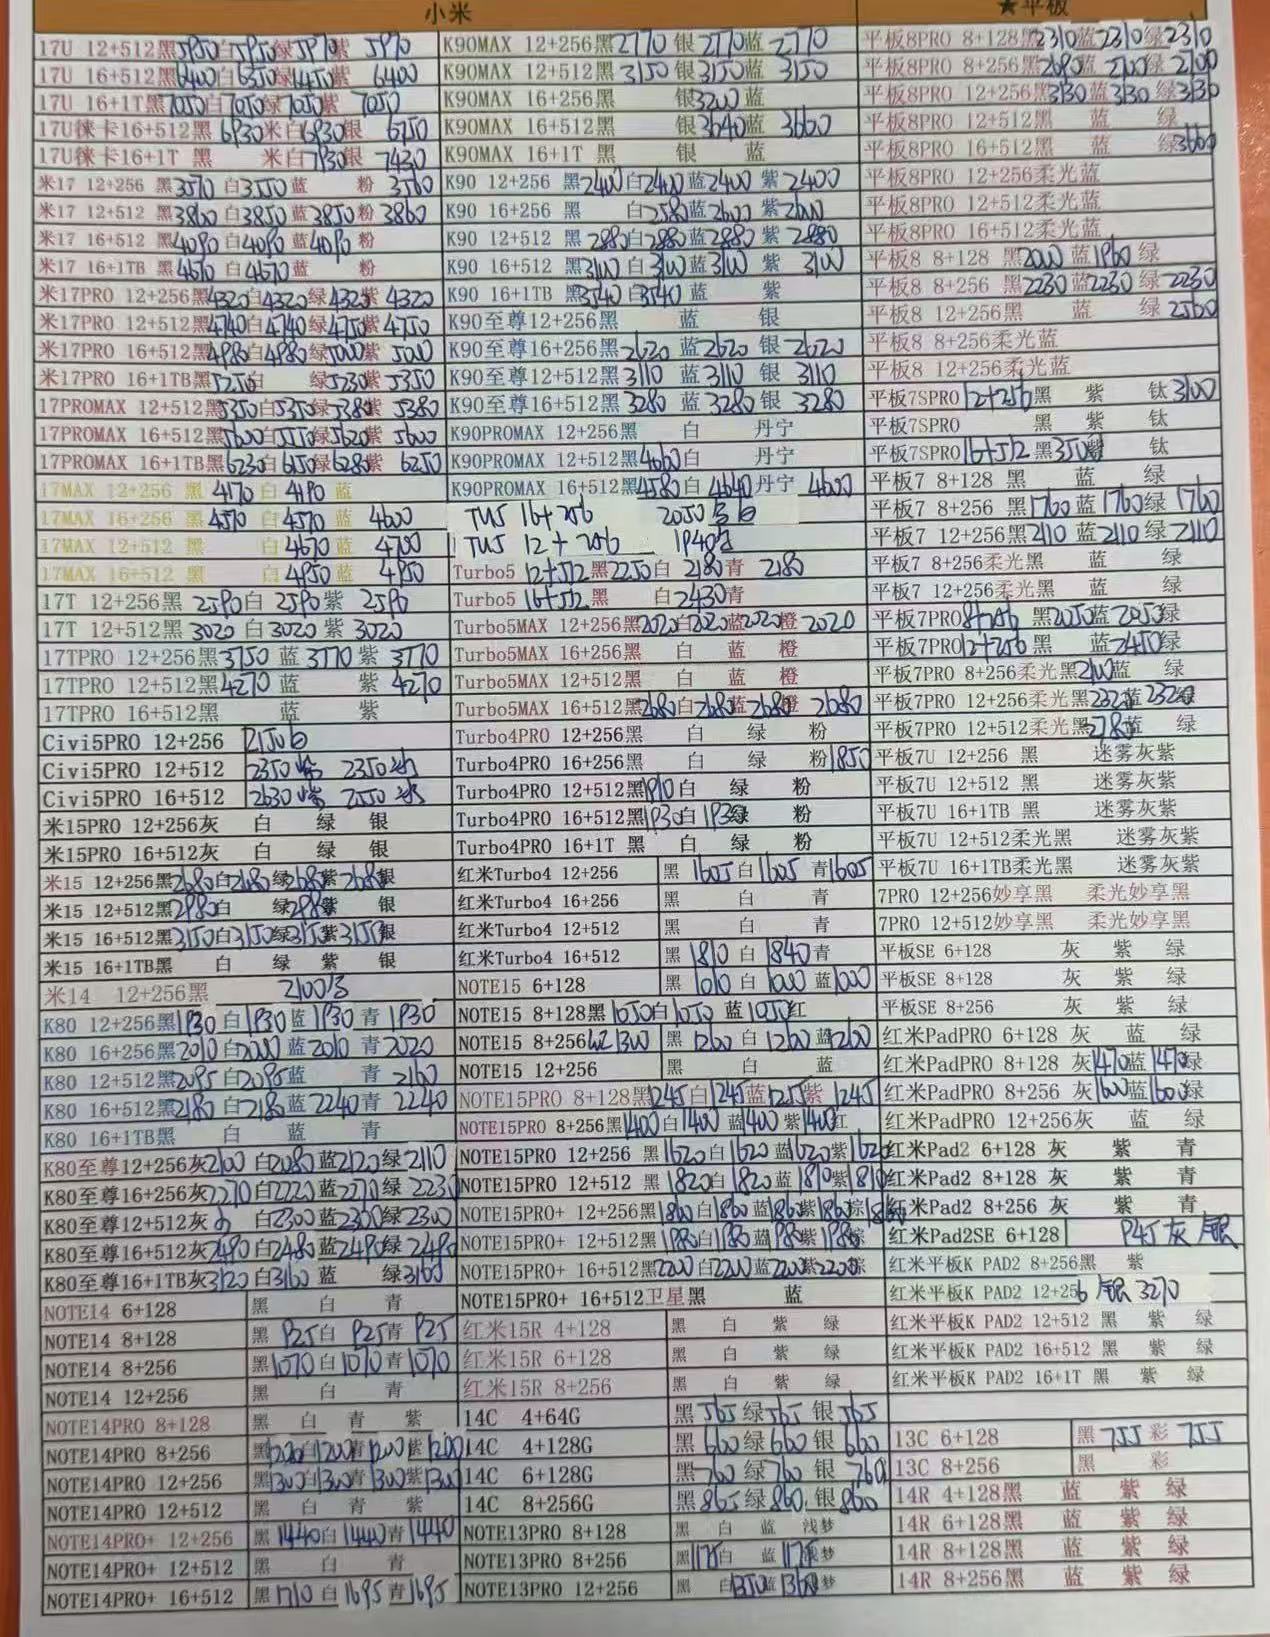 小米
★平板
17U 12+512黑5950白5950绿5970紫 5970
17U 16+512黑6400白6350绿6450紫 6400
17U 16+1T黑7050白7050绿7050紫 7050
17U徕卡16+512黑 6930米白6930银 6750
17U徕卡16+1T 黑 米白7930银 7430
米17 12+256 黑3570 白3550蓝 粉 3560
米17 12+512 黑3860 白3850蓝3850粉 3860
米17 16+512 黑4090 白4090蓝4090粉
米17 16+1TB 黑4670 白4670蓝 粉
米17PRO 12+256黑4320白4320绿4320紫 4320
米17PRO 12+512黑4740白4740绿4750紫 4750
米17PRO 16+512黑4980白4980绿5000紫 5000
米17PRO 16+1TB黑5250白 绿5230紫 5350
17PROMAX 12+512黑5350白5350绿5380紫 5380
17PROMAX 16+512黑5600白5550绿5620紫 5600
17PROMAX 16+1TB黑6230白6150绿6280紫 6250
17MAX 12+256 黑 4170白 4190蓝
17MAX 16+256 黑 4570白 4570蓝 4600
17MAX 12+512 黑 白4670蓝 4700
17MAX 16+512 黑 白4950蓝 4950
17T 12+256黑 2590白 2590紫 2590
17T 12+512黑 3020 白3020 紫 3020
17TPRO 12+256黑3750 蓝 3770 紫 3770
17TPRO 12+512黑4270 蓝 紫 4270
17TPRO 16+512黑 蓝 紫
Civi5PRO 12+256 2150白
Civi5PRO 12+512 2350紫 2350冰
Civi5PRO 16+512 2630紫 2550冰
米15PRO 12+256灰 白 绿 银
米15PRO 16+512灰 白 绿 银
米15 12+256黑2680白2680绿2680紫2680银
米15 12+512黑2980白 绿2980紫 银
米15 16+512黑3150白3150绿3150紫3150银
米15 16+1TB黑 白 绿 紫 银
米14 12+256黑 2100
K80 12+256黑1930 白1930蓝 1930 青 1930
K80 16+256黑2010 白2000蓝2010 青 2020
K80 12+512黑2095白2095蓝 青 2160
K80 16+512黑2180 白2180蓝 2240青 2240
K80 16+1TB黑 白 蓝 青
K80至尊12+256灰2100 白2080蓝2120绿 2110
K80至尊16+256灰2270白2220蓝2270绿 2230
K80至尊12+512灰 白2300蓝2300绿2300
K80至尊16+512灰2490白2480蓝2490绿 2490
K80至尊16+1TB灰3120 白3160 蓝 绿3160
NOTE14 6+128 黑 白 青
NOTE14 8+128 黑 925白 925青 925
NOTE14 8+256 黑1070白1070青1070
NOTE14 12+256 黑 白 青
NOTE14PRO 8+128 黑 白 青 紫
NOTE14PRO 8+256 黑1200白1200青1200紫1200
NOTE14PRO 12+256 黑1300白1300青1300紫1300
NOTE14PRO 12+512 黑 白 青 紫
NOTE14PRO+ 12+256 黑 1440白1440青1440
NOTE14PRO+ 12+512 黑 白 青
NOTE14PRO+ 16+512 黑1710白1695青1695
K90MAX 12+256黑2770 银2770蓝 2770
K90MAX 12+512黑3150 银3150蓝 3150
K90MAX 16+256黑 银3200蓝
K90MAX 16+512黑 银3640蓝 3660
K90MAX 16+1T 黑 银 蓝
K90 12+256 黑2400白2400蓝2400 紫2400
K90 16+256 黑 白2580蓝2600 紫2600
K90 12+512 黑 2880白2880蓝2880 紫 2880
K90 16+512 黑3100 白3100蓝3100 紫 3100
K90 16+1TB 黑3540 白3540 蓝 紫
K90至尊12+256黑 蓝 银
K90至尊16+256黑2620 蓝2620 银 2620
K90至尊12+512黑3110 蓝3110 银 3110
K90至尊16+512黑3280 蓝 3280银 3280
K90PROMAX 12+256黑 白 丹宁
K90PROMAX 12+512黑4660白 丹宁
K90PROMAX 16+512黑4580白 4640丹宁 4600
TU5 16+256 2050 白
TU5 12+256 1940
Turbo5 12+512黑2250白 2180青 2180
Turbo5 16+512黑 白2430青
Turbo5MAX 12+256黑2020白2020蓝2020橙 2020
Turbo5MAX 16+256黑 白 蓝 橙
Turbo5MAX 12+512黑 白 蓝 橙
Turbo5MAX 16+512黑2680白2680蓝2680橙 2680
Turbo4PRO 12+256黑 白 绿 粉
Turbo4PRO 16+256黑 白 绿 粉1850
Turbo4PRO 12+512黑1910白 绿 粉
Turbo4PRO 16+512黑1930白 1930绿 粉
Turbo4PRO 16+1T 黑 白 绿 粉
红米Turbo4 12+256 黑 1605白1605 青1605
红米Turbo4 16+256 黑 白 青
红米Turbo4 12+512 黑 白 青
红米Turbo4 16+512 黑 1810 白 1840青
NOTE15 6+128 黑 1010 白 1000 蓝1000
NOTE15 8+128黑1050白1050 蓝1050红
NOTE15 8+256红1300 黑 1260 白 1260蓝1260
NOTE15 12+256 黑 白 蓝
NOTE15PRO 8+128黑1245白1245蓝1255紫 1245
NOTE15PRO 8+256黑1400白1400 蓝1400 紫1400红
NOTE15PRO 12+256 黑1620白1620 蓝1620紫1620
NOTE15PRO 12+512 黑 1820白1820 蓝1810紫1810
NOTE15PRO+ 12+256黑1860白1860 蓝1860紫1860棕
NOTE15PRO+ 12+512黑1980白1980 蓝1980紫1980棕
NOTE15PRO+ 16+512黑2200白2200蓝2200紫2200棕
NOTE15PRO+ 16+512卫星黑 蓝
红米15R 4+128 黑 白 紫 绿
红米15R 6+128 黑 白 紫 绿
红米15R 8+256 黑 白 紫 绿
14C 4+64G 黑 565 绿 565 银 565
14C 4+128G 黑 600绿 600 银 600
14C 6+128G 黑760绿760 银 760
14C 8+256G 黑 865绿860.银860
NOTE13PRO 8+128 黑 白 蓝 浅梦
NOTE13PRO 8+256 黑1175白 蓝1175浅梦
NOTE13PRO 12+256 黑 白1350蓝1360梦
平板8PRO 8+128黑2310蓝2310绿2310
平板8PRO 8+256黑2690蓝 2700绿2700
平板8PRO 12+256黑3130蓝3130 绿3130
平板8PRO 12+512黑 蓝 绿
平板8PRO 16+512黑 蓝 绿3660
平板8PRO 12+256柔光蓝
平板8PRO 12+512柔光蓝
平板8PRO 16+512柔光蓝
平板8 8+128 黑2000 蓝1960 绿
平板8 8+256 黑2230蓝2230 绿 2230
平板8 12+256黑 蓝 绿 2560
平板8 8+256柔光蓝
平板8 12+256柔光蓝
平板7SPRO 12+256黑 紫 钛3100
平板7SPRO 黑 紫 钛
平板7SPRO 16+512黑3550紫 钛
平板7 8+128 黑 蓝 绿
平板7 8+256 黑1760蓝1760绿 1760
平板7 12+256黑2110 蓝2110 绿2110
平板7 8+256柔光黑 蓝 绿
平板7 12+256柔光黑 蓝 绿
平板7PRO8+256 黑2050蓝 2050绿
平板7PRO12+256 黑 蓝2450绿
平板7PRO 8+256柔光黑2100蓝 绿
平板7PRO 12+256柔光黑2320蓝2320绿
平板7PRO 12+512柔光黑2780蓝 绿
平板7U 12+256 黑 迷雾灰紫
平板7U 12+512 黑 迷雾灰紫
平板7U 16+1TB 黑 迷雾灰紫
平板7U 12+512柔光黑 迷雾灰紫
平板7U 16+1TB柔光黑 迷雾灰紫
7PRO 12+256妙享黑 柔光妙享黑
7PRO 12+512妙享黑 柔光妙享黑
平板SE 6+128 灰 紫 绿
平板SE 8+128 灰 紫 绿
平板SE 8+256 灰 紫 绿
红米PadPRO 6+128 灰 蓝 绿
红米PadPRO 8+128 灰1470蓝1470绿
红米PadPRO 8+256 灰1600蓝1600绿
红米PadPRO 12+256灰 蓝 绿
红米Pad2 6+128 灰 紫 青
红米Pad2 8+128 灰 紫 青
红米Pad2 8+256 灰 紫 青
红米Pad2SE 6+128 945灰 银
红米平板K PAD2 8+256黑 紫
红米平板K PAD2 12+256 银 3270
红米平板K PAD2 12+512 黑 紫 绿
红米平板K PAD2 16+512 黑 紫 绿
红米平板K PAD2 16+1T 黑 紫 绿
13C 6+128 黑 755 彩 755
13C 8+256 黑 彩
14R 4+128黑 蓝 紫 绿
14R 6+128黑 蓝 紫 绿
14R 8+128黑 蓝 紫 绿
14R 8+256黑 蓝 紫 绿